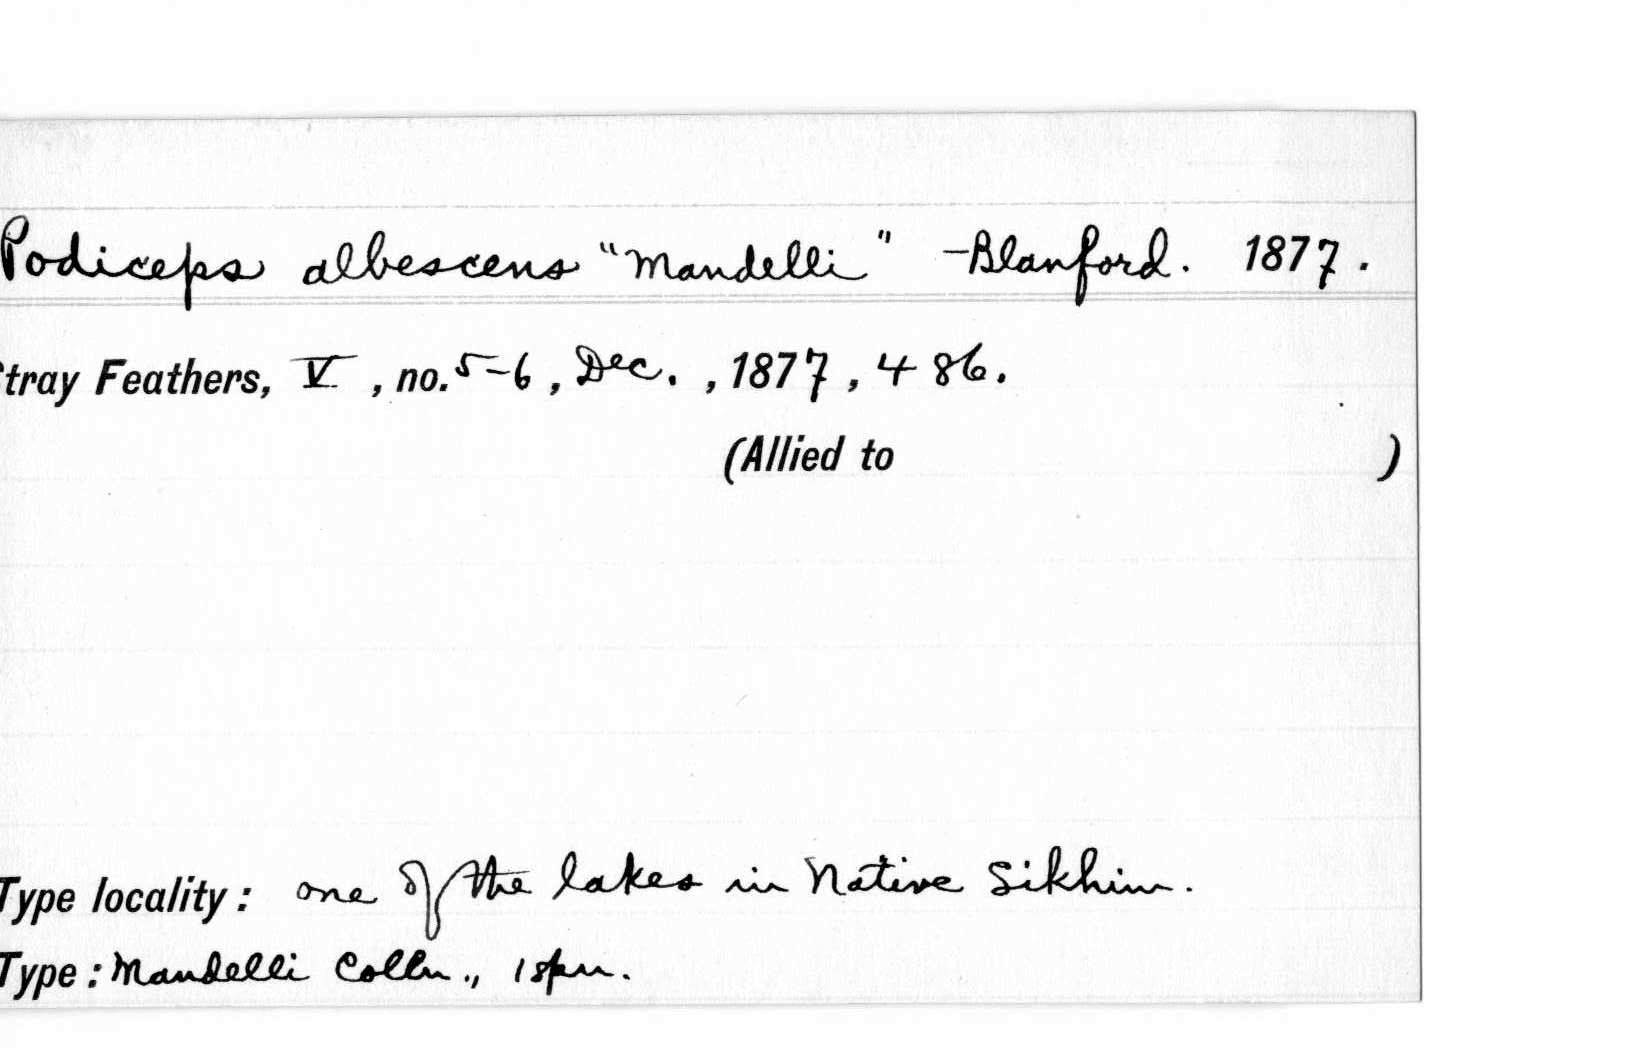 Podiceps albescens "Mandelli" - Blanford. 1877.
Stray Feathers, V, no. 5-6, Dec., 1877, 486.
(Allied to )
Type locality: one of the lakes in Native Sikhim.
Type: Mandelli Colln., 1 spm.